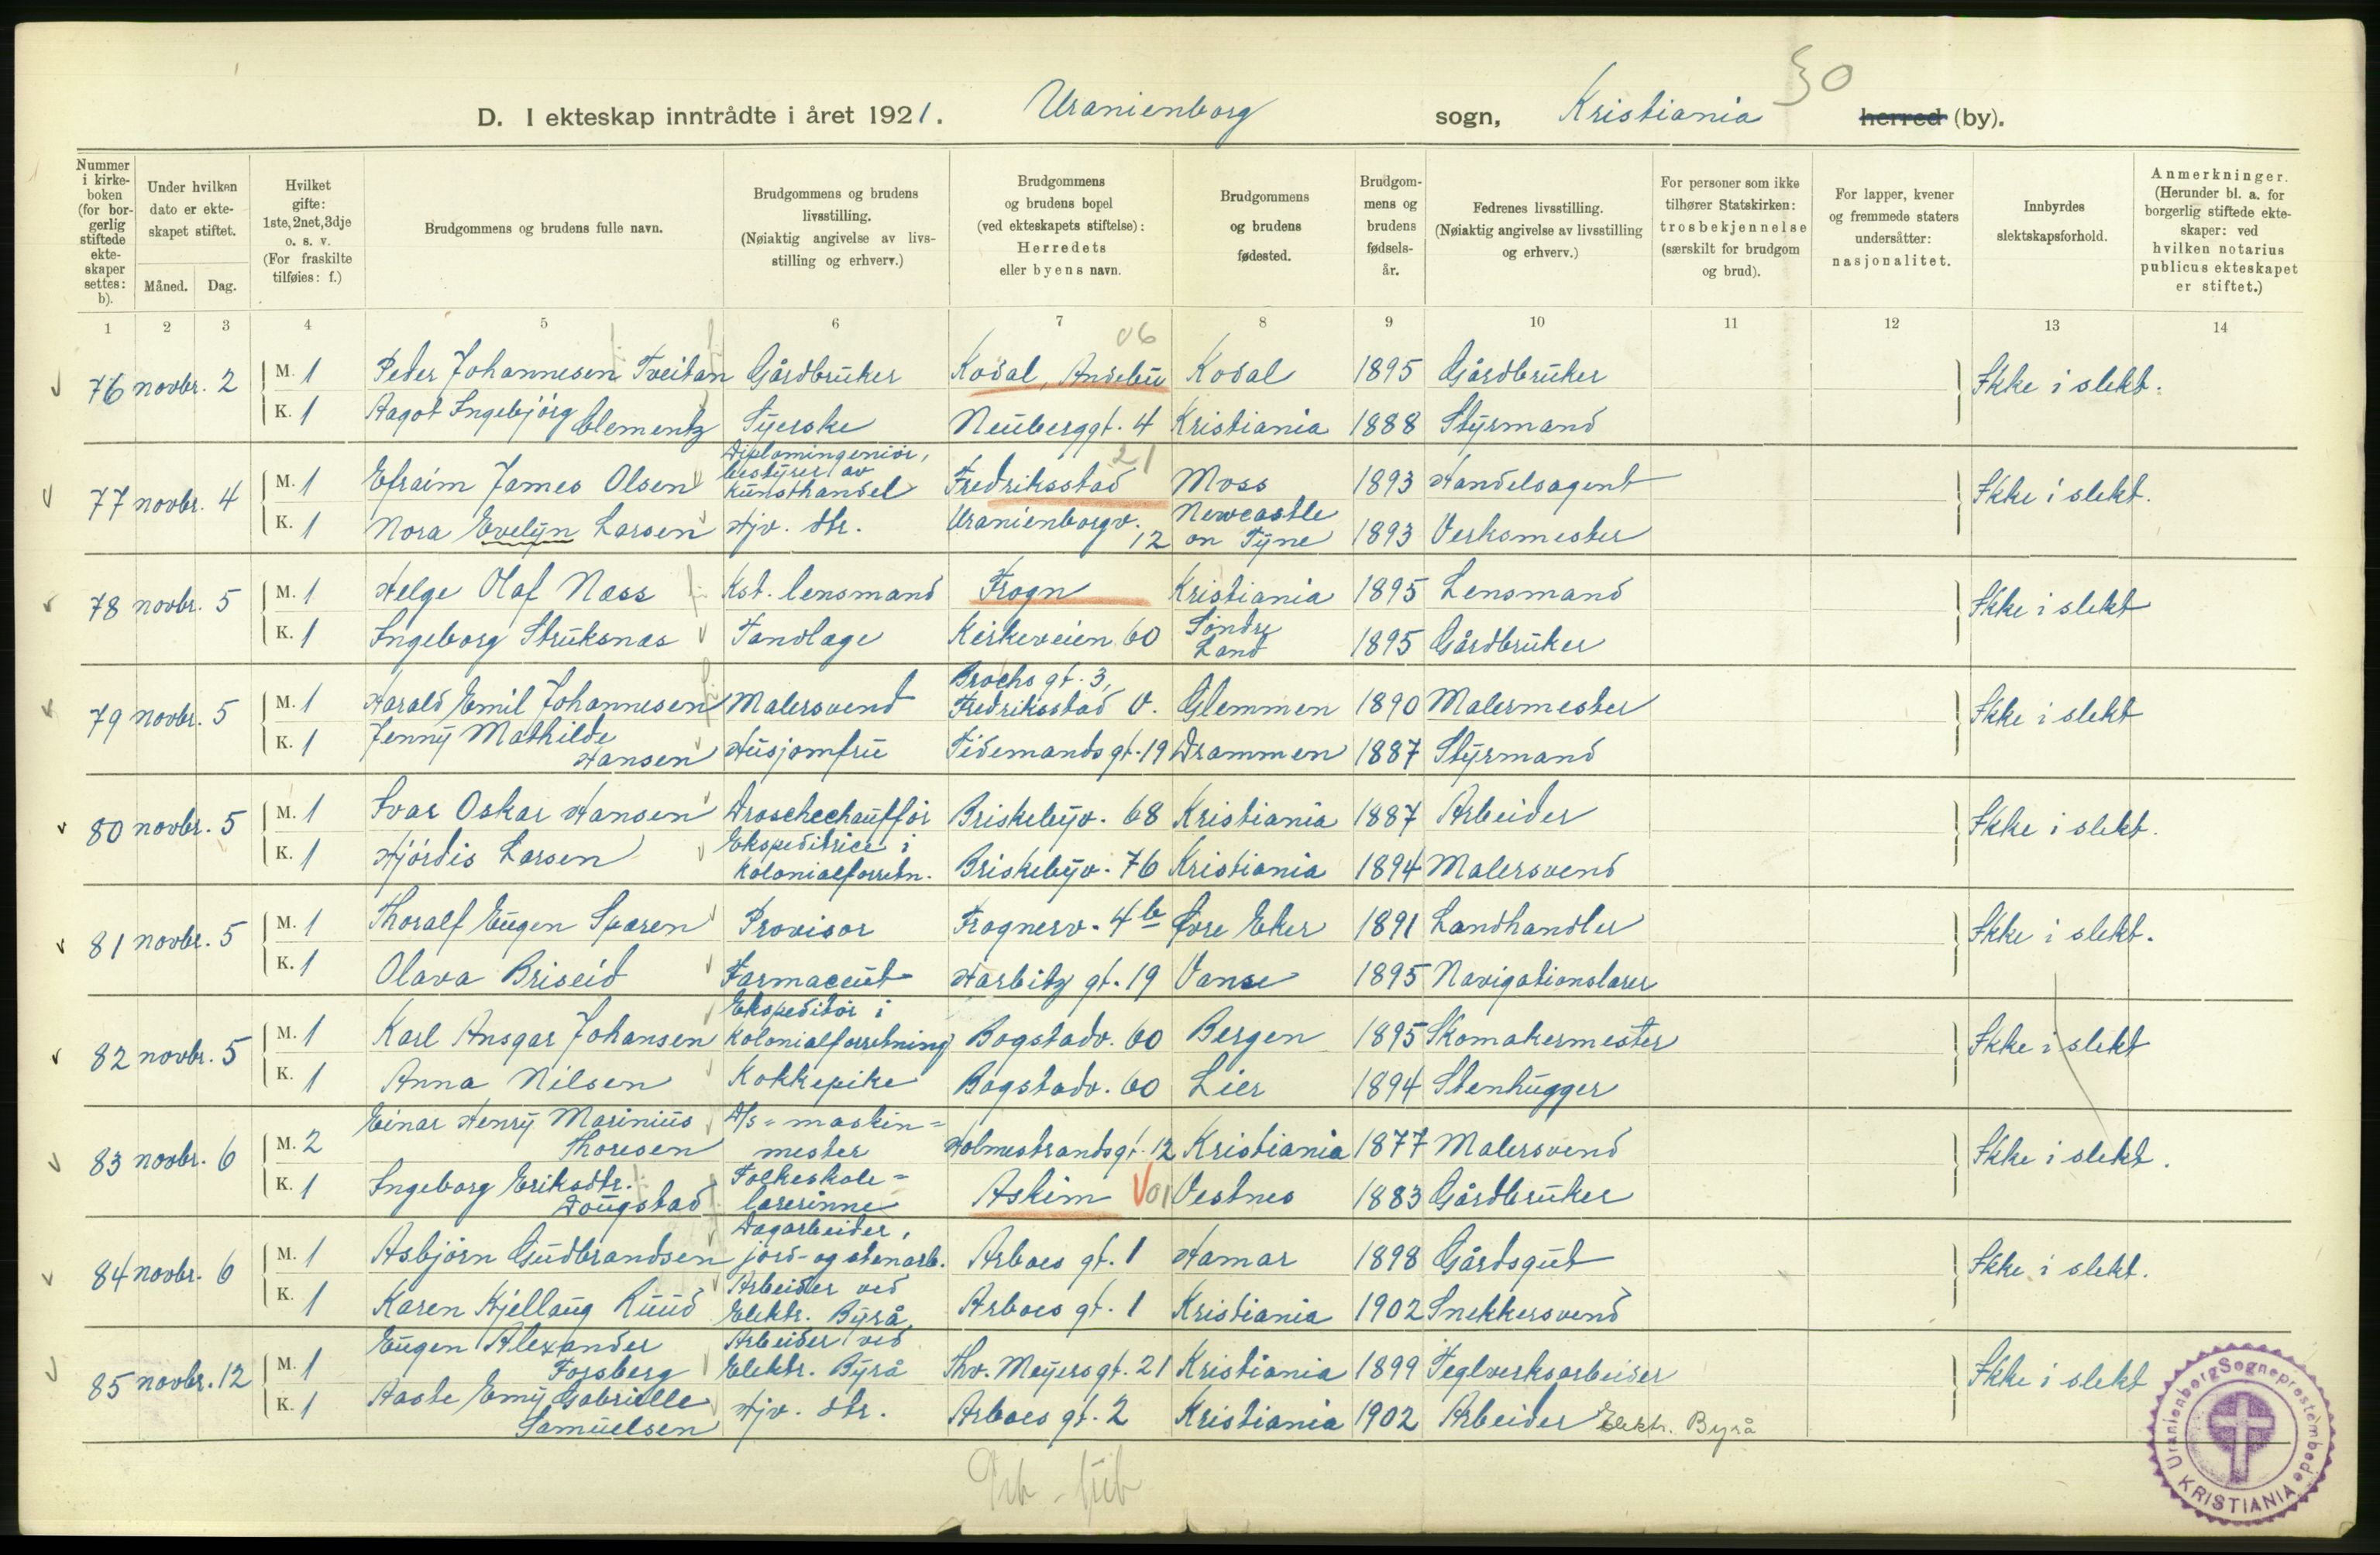 30
D. I ekteskap inntrådte i året 1921. Uranienborg sogn, Kristiania herred (by).
Nummer i kirkeboken (for borgerlig stiftede ekteskaper settes: b).
Under hvilken dato er ekteskapet stiftet.
Måned. Dag.
Hvilket gifte: 1ste, 2net, 3dje o. s. v. (For fraskilte tilføies: f.)
Brudgommens og brudens fulle navn.
Brudgommens og brudens livsstilling. (Nøiaktig angivelse av livsstilling og erhverv.)
Brudgommens og brudens bopel (ved ekteskapets stiftelse): Herredets eller byens navn.
Brudgommens og brudens fødested.
Brudgommens og brudens fødselsår.
Fedrenes livsstilling. (Nøiaktig angivelse av livsstilling og erhverv.)
For personer som ikke tilhører Statskirken: trosbekjennelse (særskilt for brudgom og brud).
For lapper, kvener og fremmede staters undersåtter: nasjonalitet.
Innbyrdes slektskapsforhold.
Anmerkninger. (Herunder bl. a. for borgerlig stiftede ekteskaper: ved hvilken notarius publicus ekteskapet er stiftet.)
1 2 3 4 5 6 7 8 9 10 11 12 13 14
06
76 novbr. 2 M. 1 Peder Johannesen Tveitan Gårdbruker Kodal, Andebu Kodal 1895 Gårdbruker Ikke i slekt.
K. 1 Aagot Ingebjörg Clementz Syerske Neuberggt. 4 Kristiania 1888 Styrmand
21
77 novbr. 4 M. 1 Efraim James Olsen Diplomingeniör, bestyrer av kunsthandel Fredriksstad Moss 1893 Handelsagent Ikke i slekt.
K. 1 Nora Evelyn Larsen Hjv. dtr. Uranienborgv. 12 Newcastle on Tyne 1893 Verksmester
78 novbr. 5 M. 1 Helge Olaf Næss Kst. lensmand Frogn Kristiania 1895 Lensmand Ikke i slekt
K. 1 Ingeborg Struksnæs Tandlæge Kirkeveien 60 Söndre Land 1895 Gårdbruker
79 novbr. 5 M. 1 Harald Emil Johannesen Malersvend Brochs gt. 3, Fredriksstad V. Glemmen 1890 Malermester Ikke i slekt
K. 1 Jenny Mathilde Hansen Husjomfru Tidemands gt. 19 Drammen 1887 Styrmand
80 novbr. 5 M. 1 Ivar Oskar Hansen Droschechaufför Briskebyv. 68 Kristiania 1887 Arbeider Ikke i slekt.
K. 1 Hjördis Larsen Ekspeditrice i kolonialforretn. Briskebyv. 76 Kristiania 1894 Malersvend
81 novbr. 5 M. 1 Thoralf Eugen Sparen Provisor Frognerv. 4b Øvre Eker 1891 Landhandler Ikke i slekt.
K. 1 Olava Briseid Farmaceut Harbitz gt. 19 Vanse 1895 Navigationslærer
82 novbr. 5 M. 1 Karl Ansgar Johansen Ekspeditör i kolonialforretning Bogstadv. 60 Bergen 1895 Skomakermester Ikke i slekt
K. 1 Anna Nilsen Kokkepike Bogstadv. 60 Lier 1894 Stenhugger
83 novbr. 6 M. 2 Einar Henry Marinius Thoresen D/s-maskinmester Holmestrandsgt. 12 Kristiania 1877 Malersvend Ikke i slekt.
K. 1 Ingeborg Eriksdtr. Dougstad Folkeskolelærerinne Askim 01 Vestnes 1883 Gårdbruker
84 novbr. 6 M. 1 Asbjörn Gudbrandsen Dagarbeider, jord- og stenarb. Arboes gt. 1 Hamar 1898 Gårdsgut Ikke i slekt.
K. 1 Karen Kjellaug Ruud Arbeider ved Elektr. Byrå Arboes gt. 1 Kristiania 1902 Snekkersvend
85 novbr. 12 M. 1 Eugen Alexander Forsberg Arbeider ved Elektr. Byrå Thv. Meyers gt. 21 Kristiania 1899 Teglverksarbeider Ikke i slekt
K. 1 Aaste Emy Gabrielle Samuelsen Hjv. dtr. Arboes gt. 2 Kristiania 1902 Arbeider Elektr. Byrå
Uranienborg Sogneprestembede
KRISTIANIA